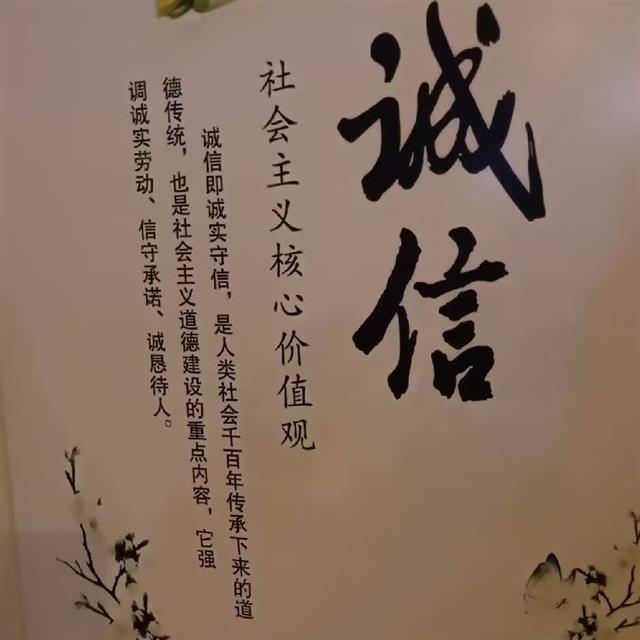 诚信
社会主义核心价值观
诚信即诚实守信，是人类社会千百年传承下来的道
德传统，也是社会主义道德建设的重点内容，它强
调诚实劳动、信守承诺、诚恳待人。